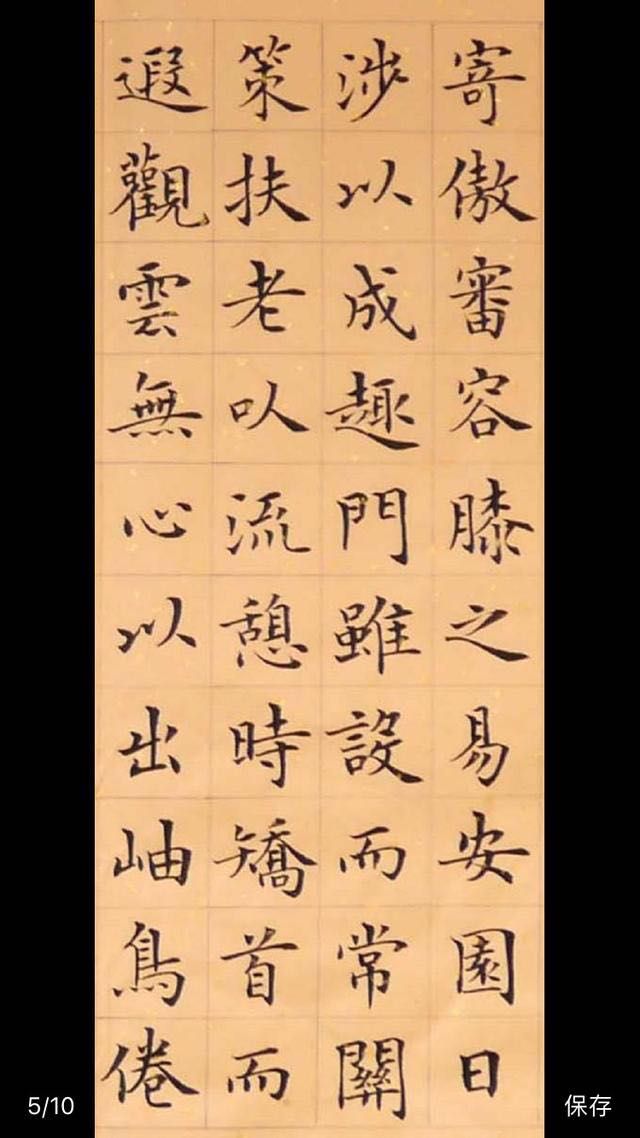 寄傲審容膝之易安園日
涉以成趣門雖設而常關
策扶老以流憩時矯首而
遐觀雲無心以出岫鳥倦
5/10
保存